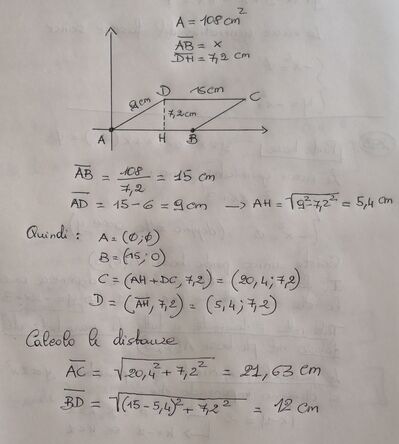 A = 108 cm²
A̅B̅ = x
D̅H̅ = 7,2 cm
D 15cm C
9cm
7,2cm
A H B
A̅B̅ = 108/7,2 = 15 cm
A̅D̅ = 15-6 = 9cm → AH = √9²-7,2² = 5,4 cm
Quindi : A = (0;0)
B = (15;0)
C = (AH+DC, 7,2) = (20,4; 7,2)
D = (A̅H̅, 7,2) = (5,4; 7,2)
Calcolo le distanze
A̅C̅ = √20,4² + 7,2² = 21,63 cm
B̅D̅ = √(15-5,4)² + 7,2² = 12 cm